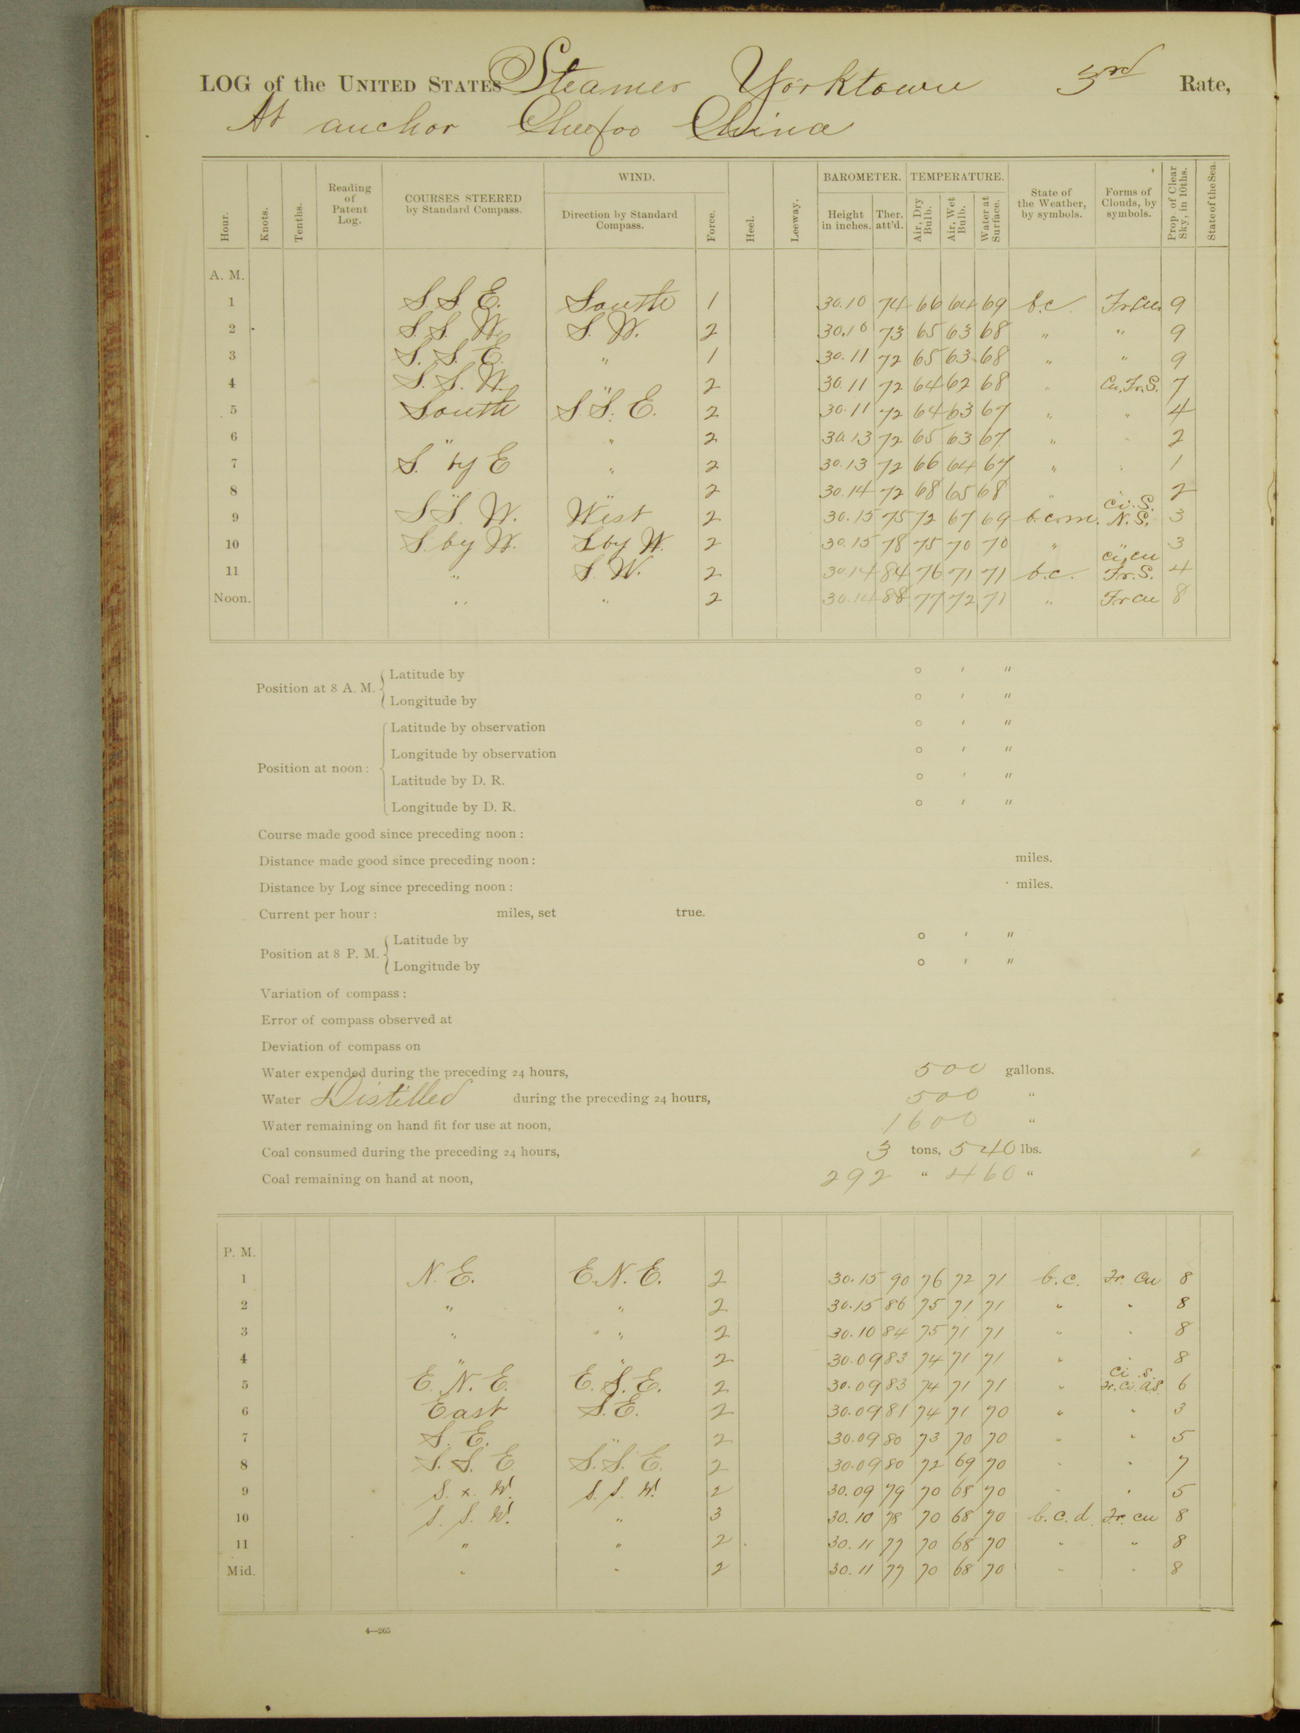 LOG of the UNITED STATES Steamer Yorktown 3rd Rate,
At anchor Cheefoo China
Hour. Knots. Tenths. Reading of Patent Log. COURSES STEERED by Standard Compass. WIND. Direction by Standard Compass. Force. Heel. Leeway. BAROMETER. Height in inches. Ther. att'd. TEMPERATURE. Air, Dry Bulb. Air, Wet Bulb. Water at Surface. State of the Weather, by symbols. Forms of Clouds, by symbols. Prop. of Clear Sky, in 10ths. State of the Sea.
A. M.
1 S S E. South 1 30.10 74 66 64 69 b.c. Fr.Cu. 9
2 S. S. W. S. W. 2 30.10 73 65 63 68 " " 9
3 S. S. E. " 1 30.11 72 65 63 68 " " 9
4 S. S. W. " 2 30.11 72 64 62 68 " Cu. Fr. S. 7
5 South S S. E. 2 30.11 72 64 63 67 " " 4
6 " " 2 30.13 72 65 63 67 " " 2
7 S. by E " 2 30.13 72 66 64 67 " " 1
8 " " 2 30.14 72 68 65 68 " " 2
9 S S. W. West 2 30.15 75 72 67 69 b.c.m. Ci. S. N. S. 3
10 S. by W. S by W. 2 30.15 78 75 70 70 " " 3
11 " S. W. 2 30.14 84 76 71 71 b.c. Ci Cu Fr. S. 4
Noon. " " 2 30.14 88 77 72 71 " Fr Cu 8
Position at 8 A. M. Latitude by ° ' "
Longitude by ° ' "
Position at noon: Latitude by observation ° ' "
Longitude by observation ° ' "
Latitude by D. R. ° ' "
Longitude by D. R. ° ' "
Course made good since preceding noon:
Distance made good since preceding noon: miles.
Distance by Log since preceding noon: miles.
Current per hour: miles, set true.
Position at 8 P. M. Latitude by ° ' "
Longitude by ° ' "
Variation of compass:
Error of compass observed at
Deviation of compass on
Water expended during the preceding 24 hours, 500 gallons.
Water Distilled during the preceding 24 hours, 500 "
Water remaining on hand fit for use at noon, 1600 "
Coal consumed during the preceding 24 hours, 3 tons, 540 lbs.
Coal remaining on hand at noon, 292 " 460 "
P. M.
1 N. E. E. N. E. 2 30.15 90 76 72 71 b.c. Fr. Cu 8
2 " " 2 30.15 86 75 71 71 " " 8
3 " " 2 30.10 84 75 71 71 " " 8
4 " " 2 30.09 83 74 71 71 " " 8
5 E. N. E. E. S. E. 2 30.09 83 74 71 71 " Ci. S. 6
6 East S. E. 2 30.09 81 74 71 70 " " 3
7 S. E. " 2 30.09 80 73 70 70 " " 5
8 S. S. E S. S. E. 2 30.09 80 72 69 70 " " 7
9 S. x. W. S. S. W. 2 30.09 79 70 68 70 " " 5
10 S. S. W. " 3 30.10 78 70 68 70 b.c.d. Fr. Cu 8
11 " " 2 30.11 77 70 68 70 " " 8
Mid. " " 2 30.11 77 70 68 70 " " 8
4—265